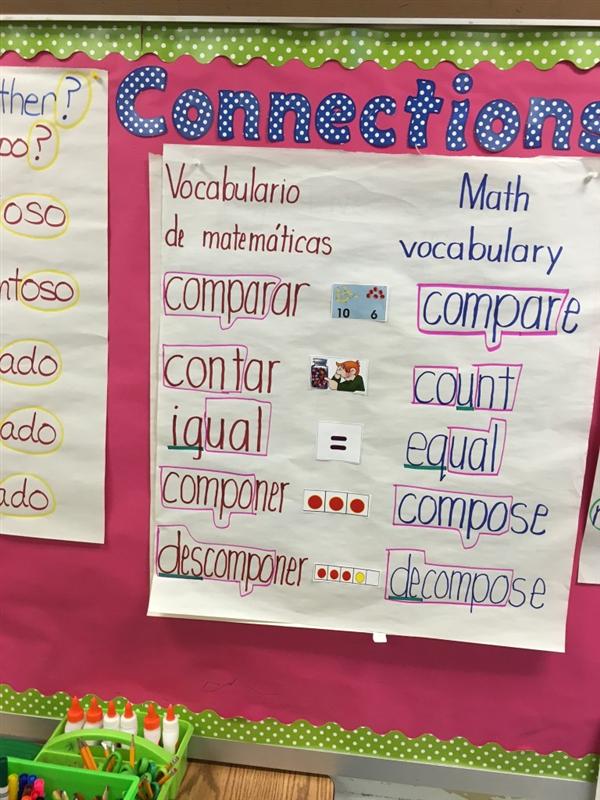 Connections
ther?
oso
ntoso
ado
ado
ado
Vocabulario
de matemáticas
Math
vocabulary
comparar 10 6 compare
contar count
igual = equal
componer compose
descomponer decompose